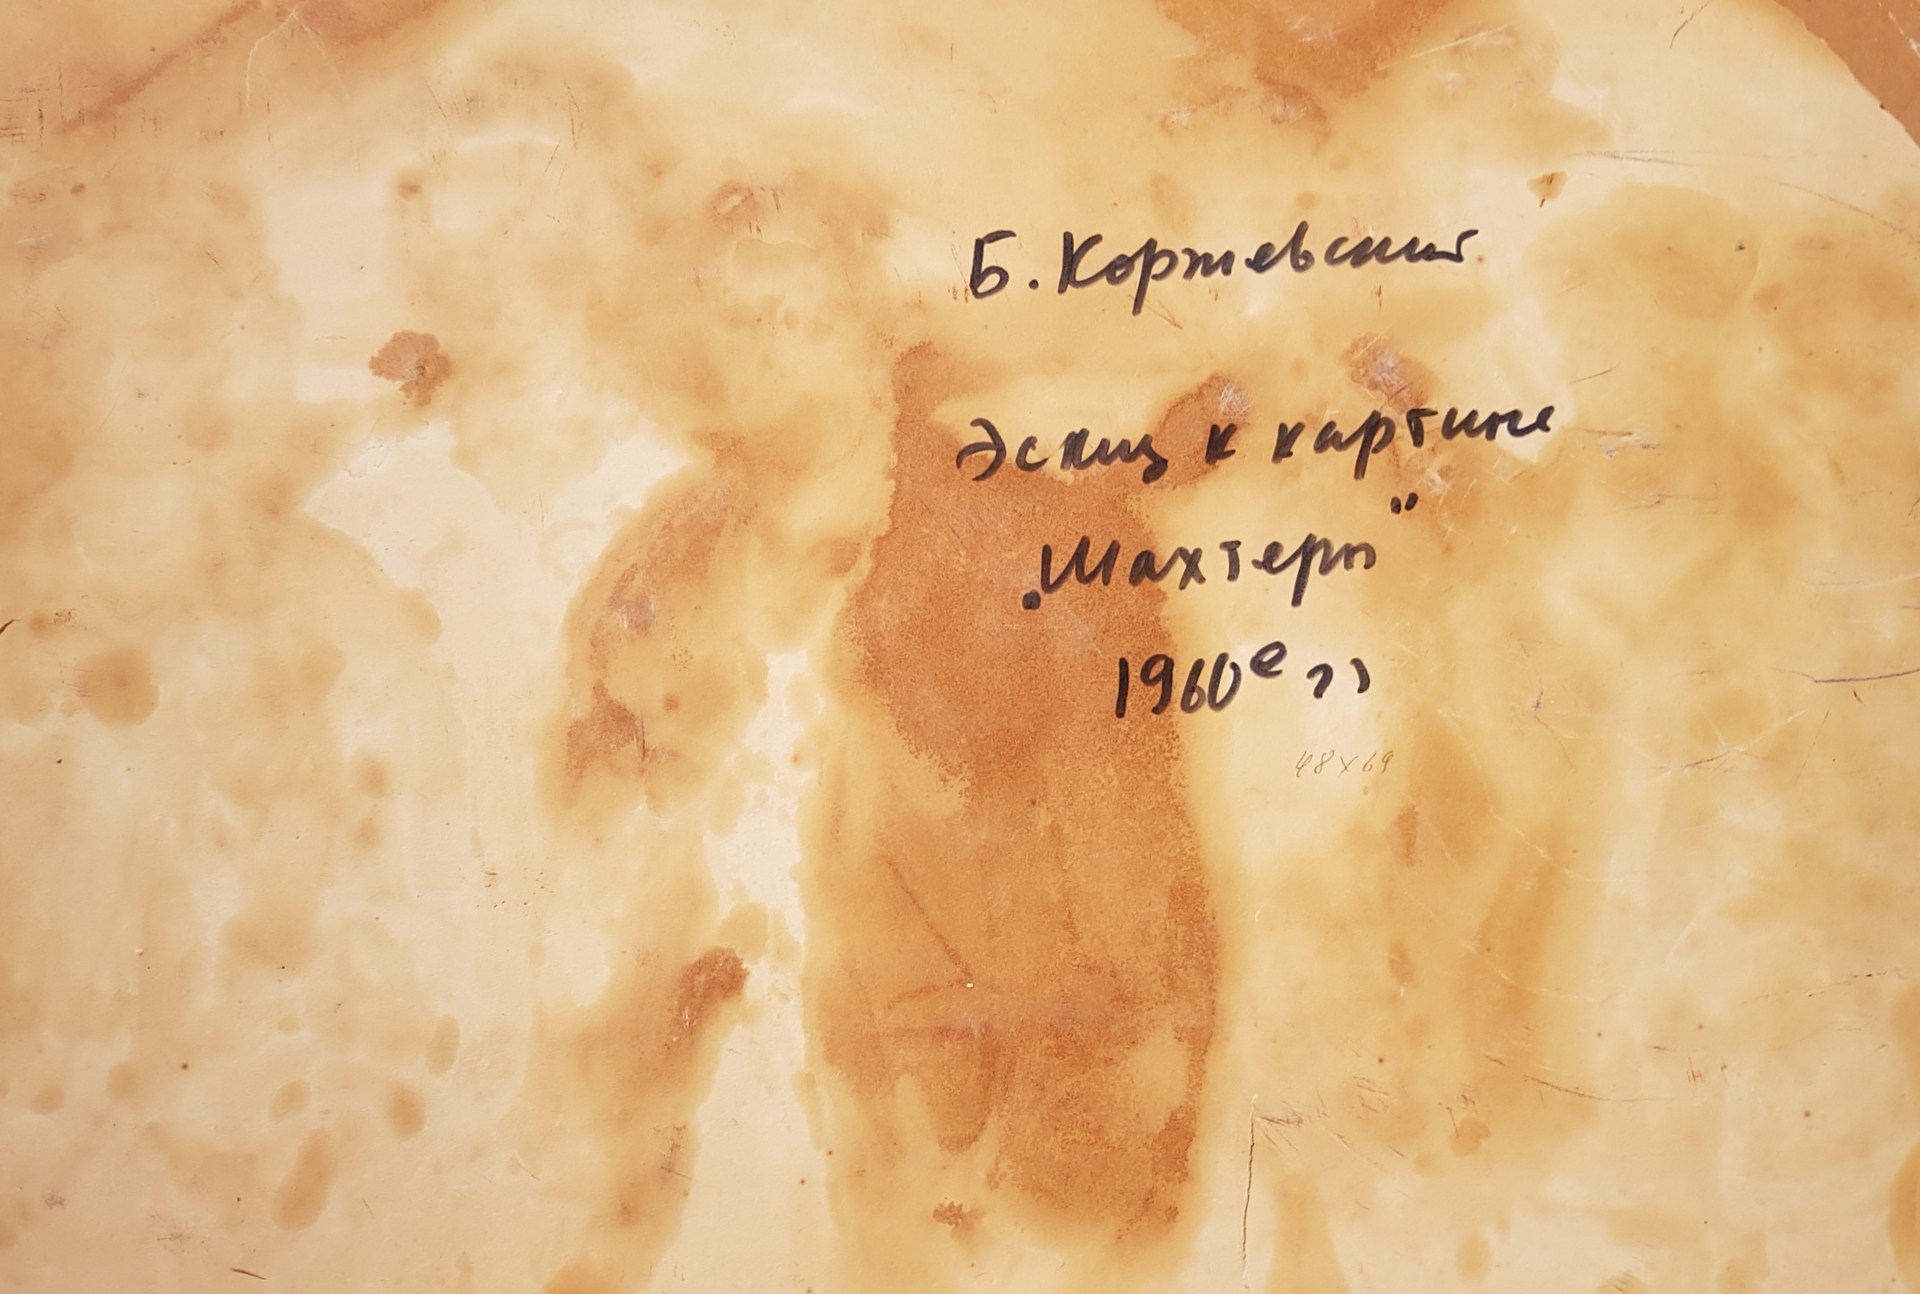 Б. Коржевский
Эскиз к картине
„Шахтеры"
1960е гг
48х69